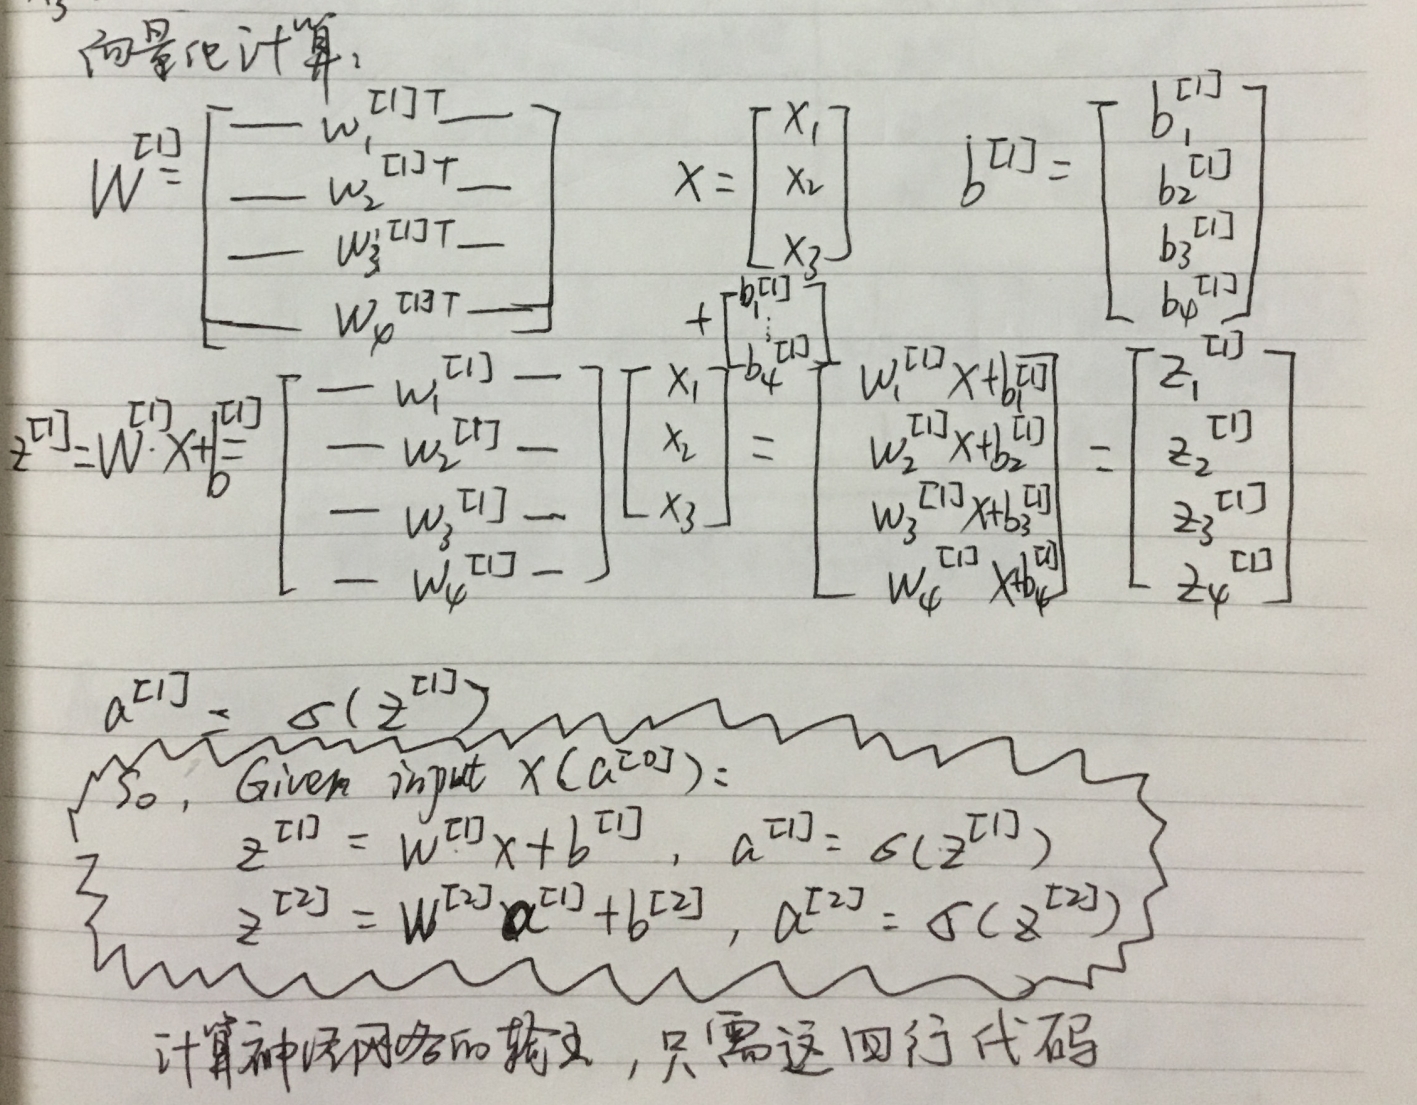 向量化计算:
W^{[1]} = [ — w_1^{[1]T} — ; — w_2^{[1]T} — ; — w_3^{[1]T} — ; — w_4^{[1]T} — ]    x = [ x_1 ; x_2 ; x_3 ]    b^{[1]} = [ b_1^{[1]} ; b_2^{[1]} ; b_3^{[1]} ; b_4^{[1]} ]
z^{[1]} = W^{[1]}·x + b^{[1]} = [ — w_1^{[1]} — ; — w_2^{[1]} — ; — w_3^{[1]} — ; — w_4^{[1]} — ] [ x_1 ; x_2 ; x_3 ] + [ b_1^{[1]} ; ⋮ ; b_4^{[1]} ] = [ w_1^{[1]}x+b_1^{[1]} ; w_2^{[1]}x+b_2^{[1]} ; w_3^{[1]}x+b_3^{[1]} ; w_4^{[1]}x+b_4^{[1]} ] = [ z_1^{[1]} ; z_2^{[1]} ; z_3^{[1]} ; z_4^{[1]} ]
a^{[1]} = σ(z^{[1]})
So, Given input x(a^{[0]}):
z^{[1]} = W^{[1]}x + b^{[1]}, a^{[1]} = σ(z^{[1]})
z^{[2]} = W^{[2]}a^{[1]} + b^{[2]}, a^{[2]} = σ(z^{[2]})
计算神经网络的输出,只需这四行代码